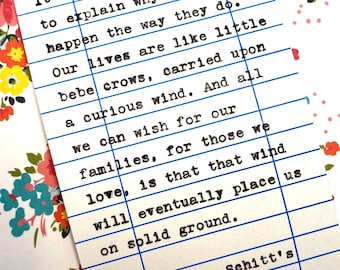 to explain why
happen the way they do.
Our lives are like little
bebe crows, carried upon
a curious wind. And all
we can wish for our
families, for those we
love, is that that wind
will eventually place us
on solid ground.
Schitt's